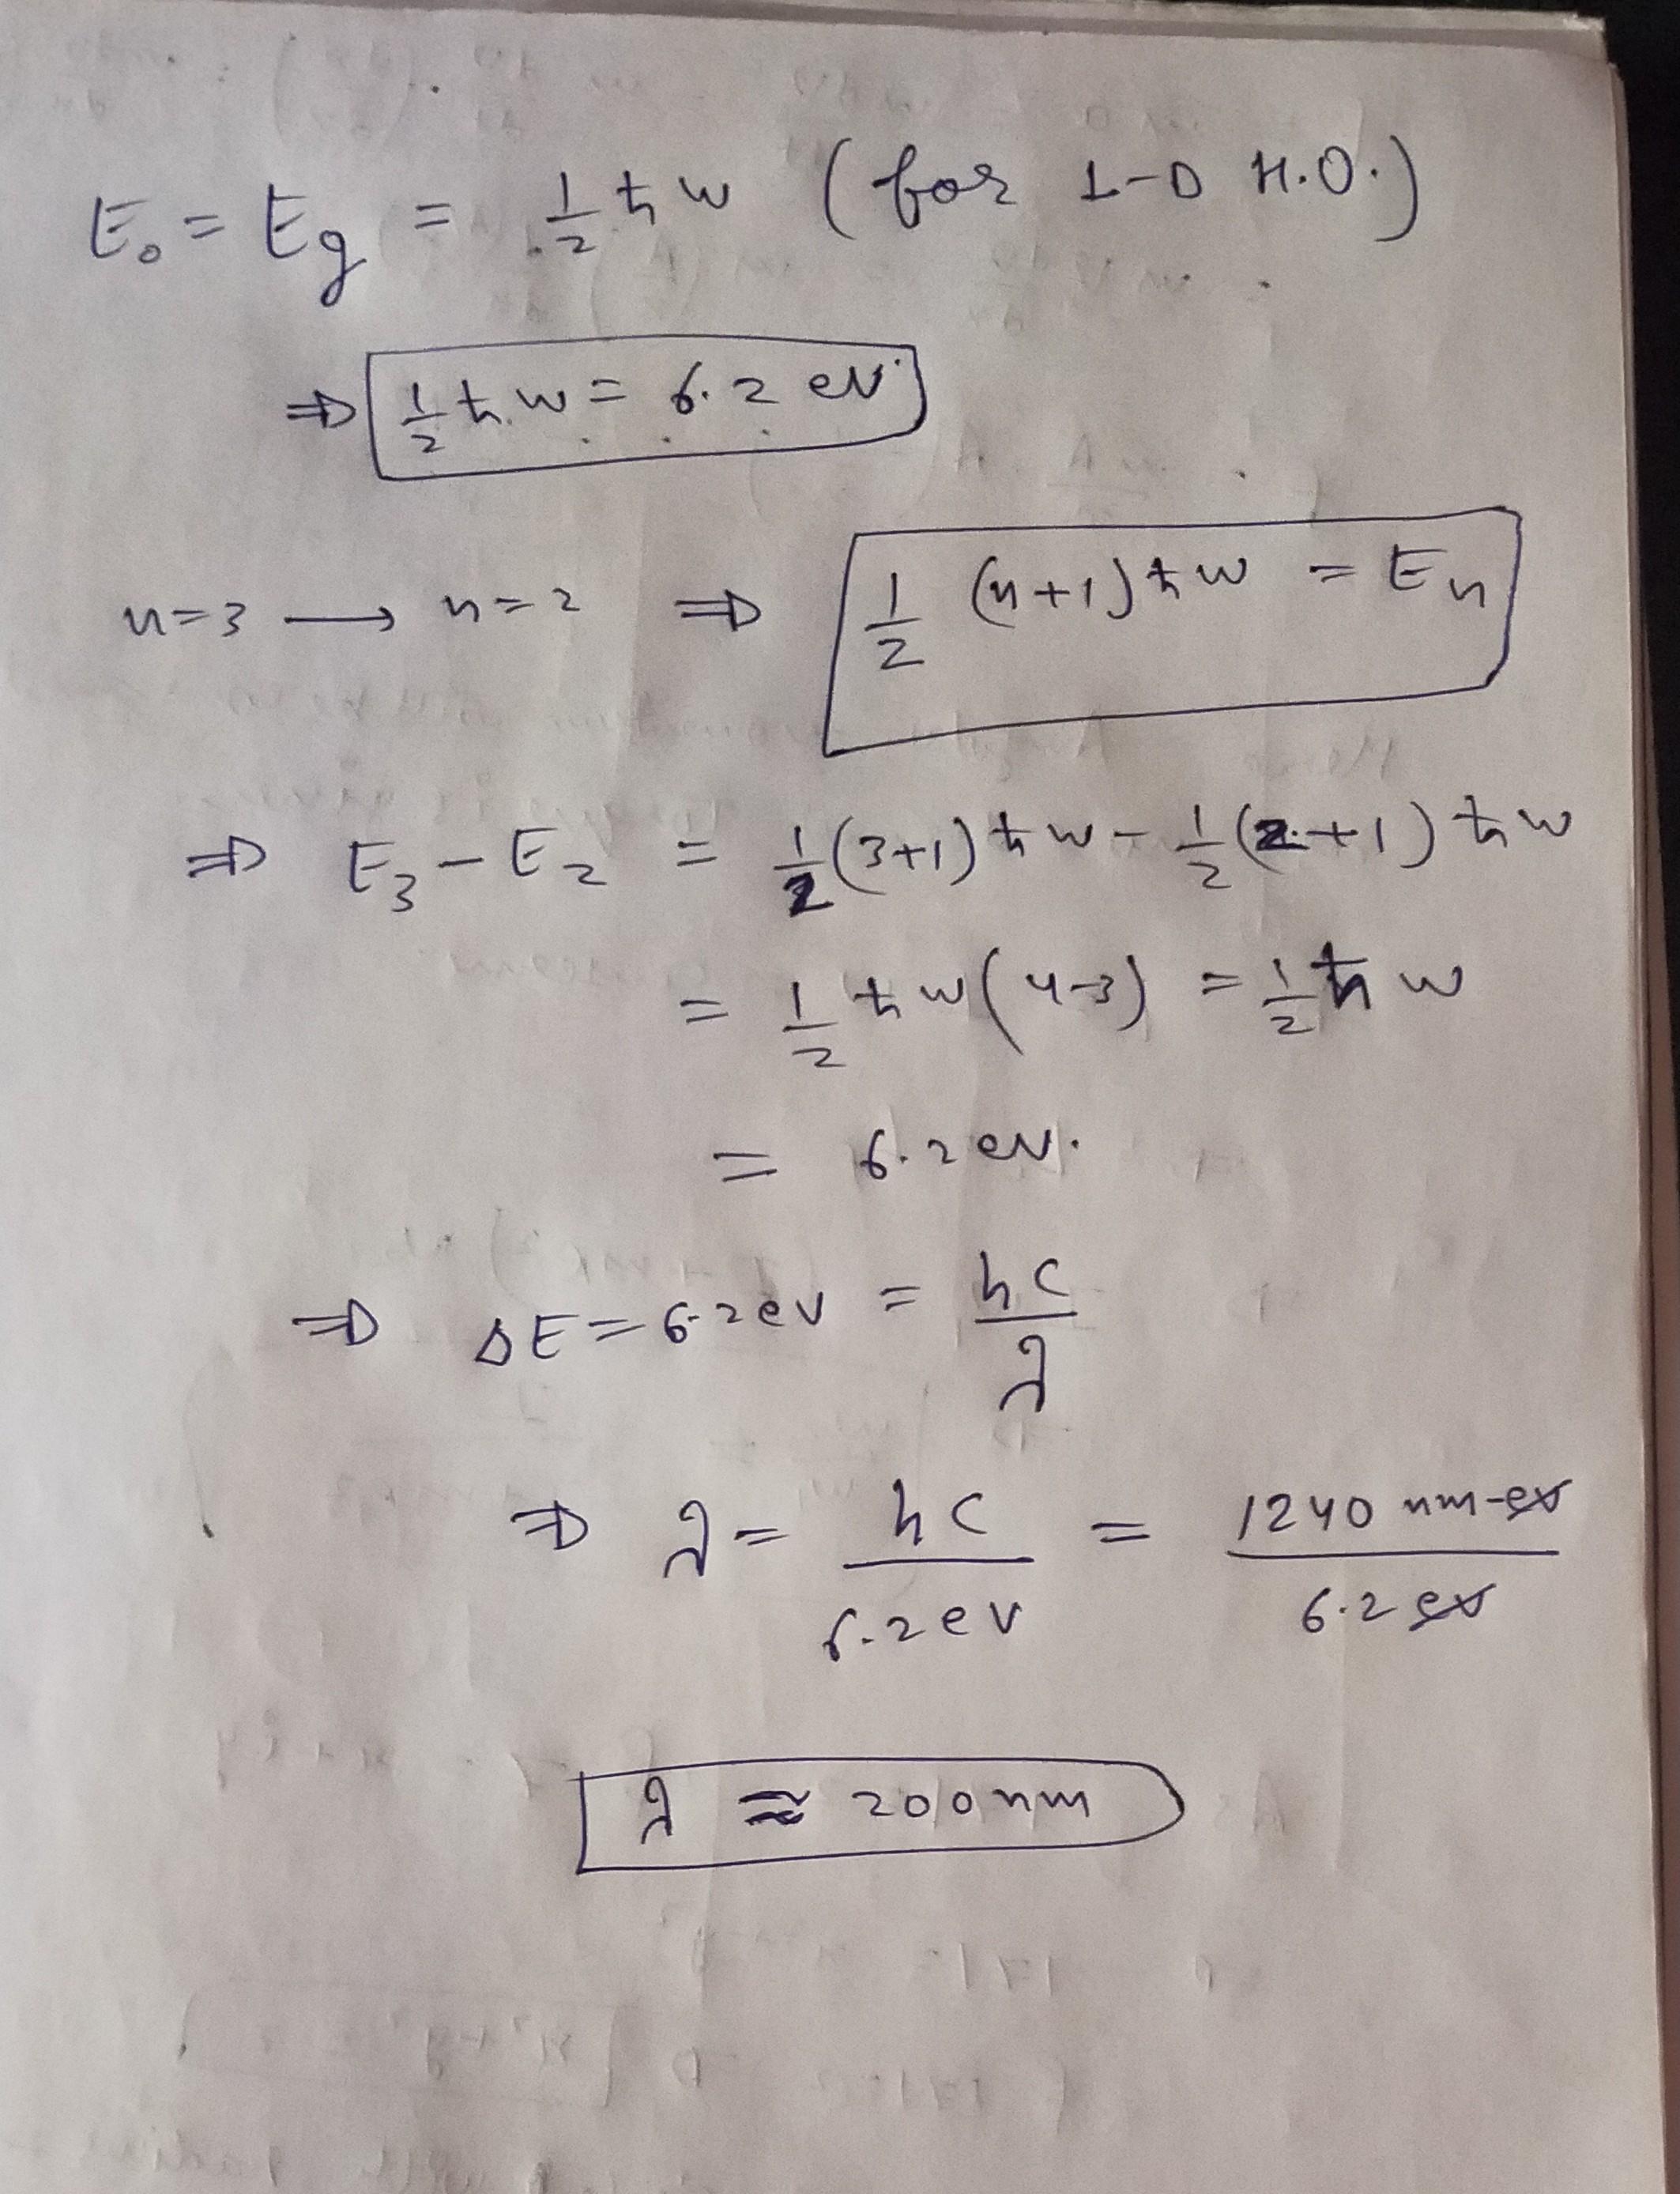 E₀ = Eg = 1/2 ħw (for 1-D H.O.)
⇒ 1/2 ħw = 6.2 eV
n=3 → n=2 ⇒ 1/2 (n+1)ħw = En
⇒ E₃ - E₂ = 1/2(3+1)ħw - 1/2(2+1)ħw
= 1/2 ħw(4-3) = 1/2 ħw
= 6.2 eV.
⇒ ΔE = 6.2 eV = hc/λ
⇒ λ = hc/6.2eV = 1240 nm-eV/6.2 eV
λ ≈ 200nm